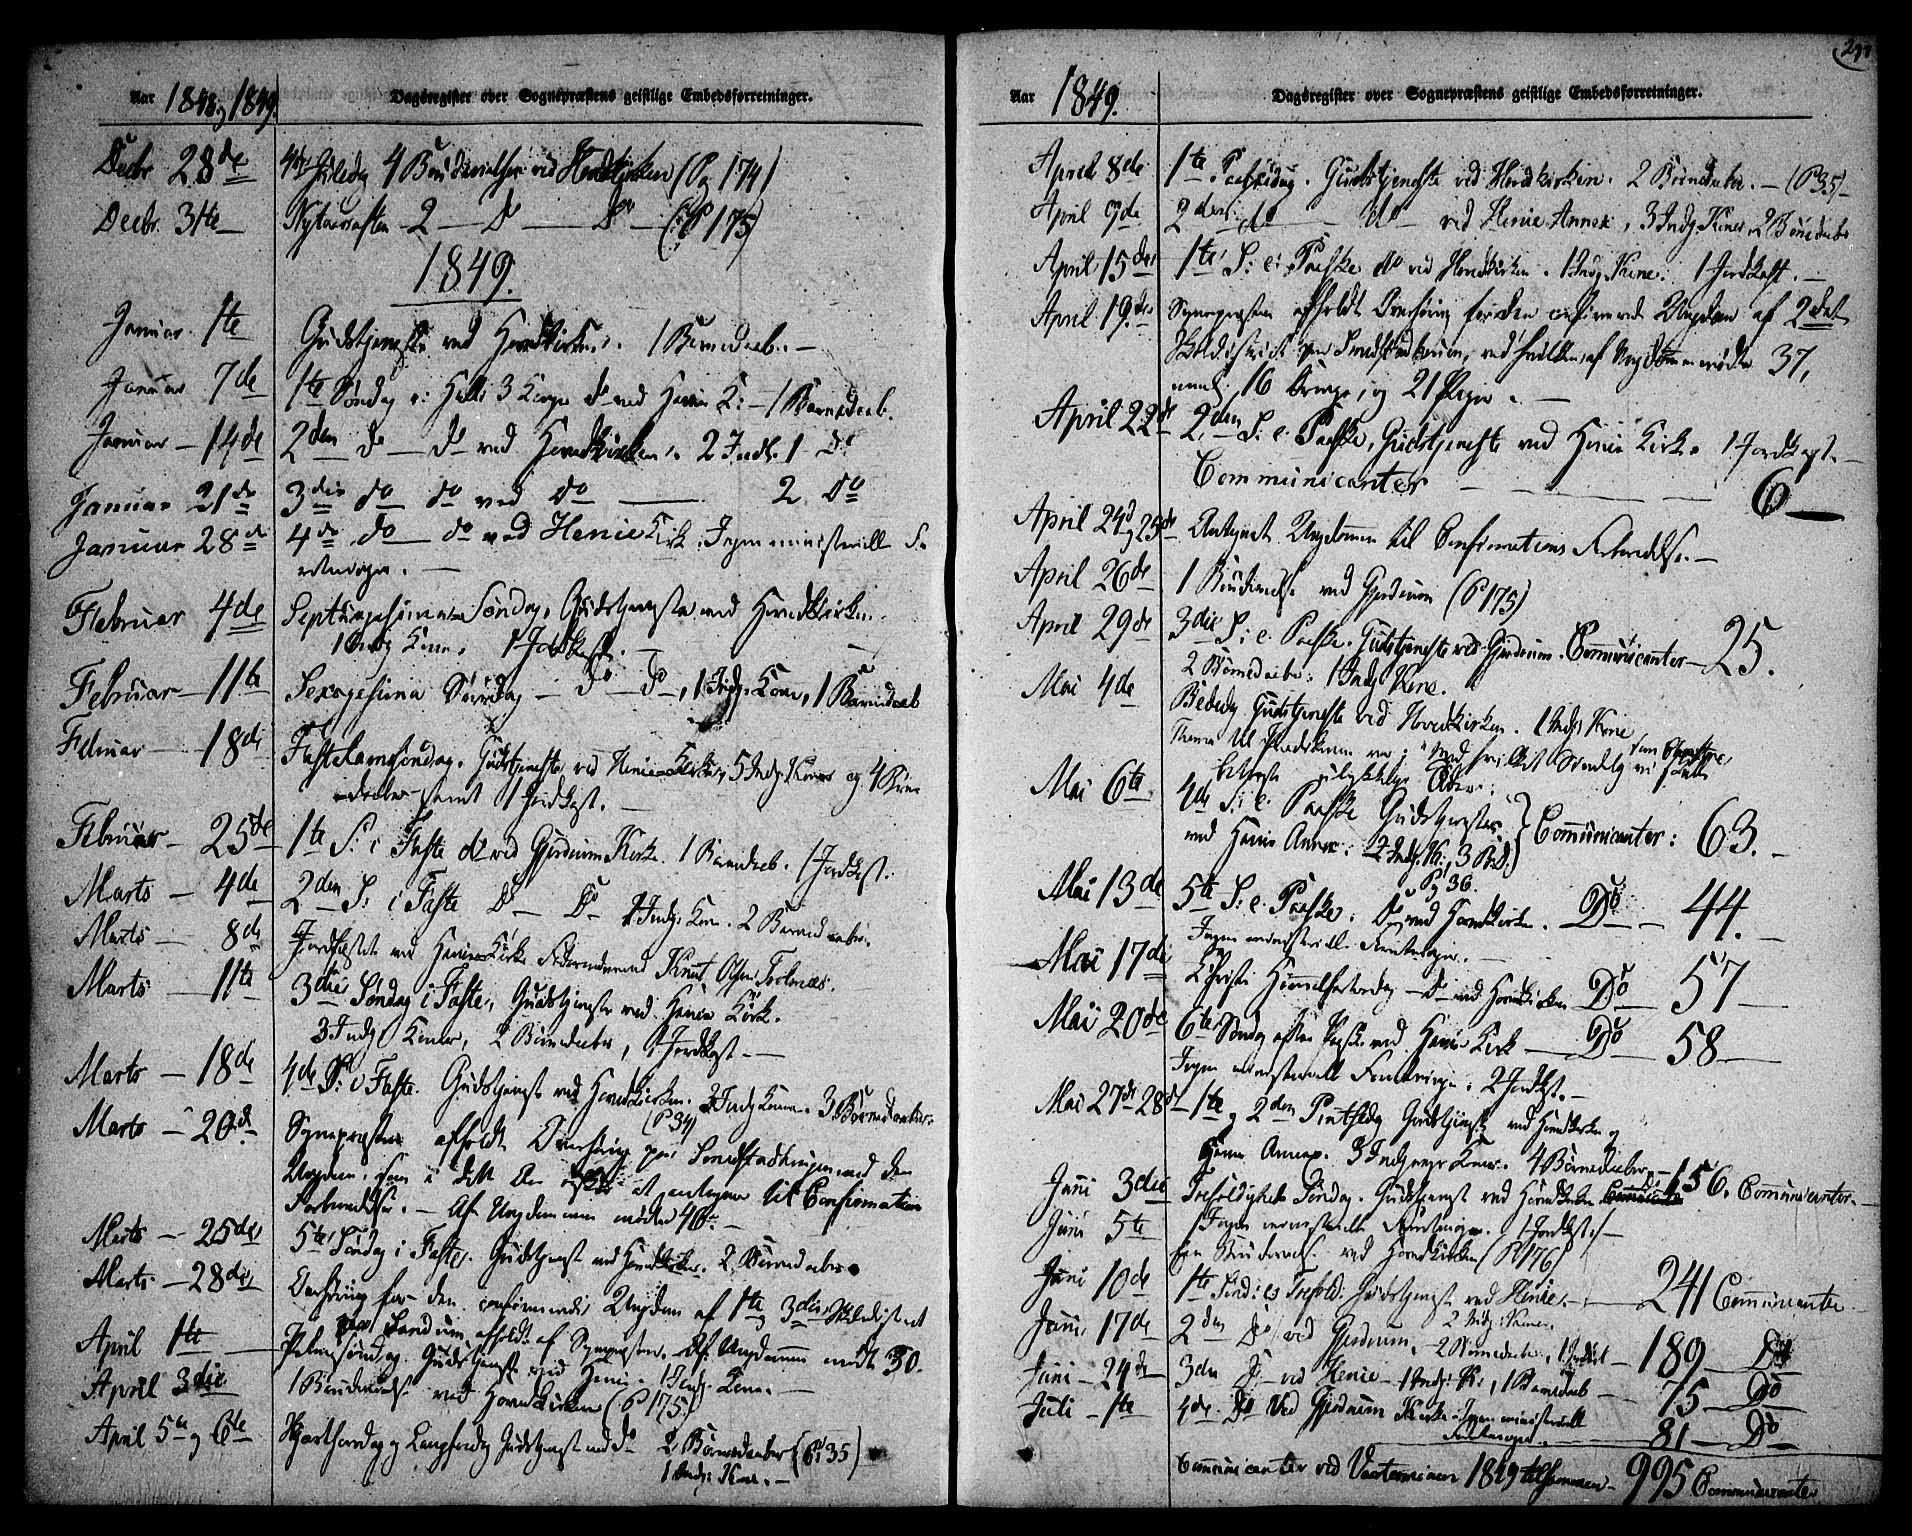 Aar 1848 og 1849. Dagsregister over Sognepræstens geistlige Embedsforretninger.
Decbr 28de 4de Juledag 4 Brudevielser ved Hovedkirken (Pag 174)
Decbr. 31te Nytaarsaften 2 — Do — Do — (P 175)
1849.
Januar 1te Gudstjeneste ved Hovedkirken. 1 Barnedaab. —
Januar 7de 1te Søndag e: Hell: 3 Konger do ved Henie K: — 1 Barnedaab.
Januar — 14de 2den do — do ved Hovedkirken. 2 Indl. 1 Do
Januar 21de 3die do do ved Do — 2 Do
Januar 28de 4de do — do ved Henie Kirk. Ingen ministerielle For
retninger. —
Februar 4de Septuagesima Søndag, Gudstjeneste ved Hovedkirken.
1 Indg Kone. 1 Jordkast. —
Februar — 11te Sexagesima Søndag — Do — Do, 1 Indg. Kone, 1 Barnedaab
Februar — 18de Fastelavnssøndag. Gudstjeneste ved Henie Kirke, 5 Indg. Koner og 4 Børne
daabe samt 1 Jordkast. —
Februar — 25de 1te S: i Faste do ved Gjerdrum Kirke. 1 Barnedaab. 1 Jordkast.
Marts — 4de 2den S: i Faste Do — Do 1 Indg. Kone. 2 Børnedaabe.
Marts — 8de Jordfæstet ved Henie Kirke Knut
Marts — 11te 3die Søndag i Faste, Gudstjeneste ved Henie Kirk.
3 Indg Koner, 2 Børnedaabe, 1 Jordkast. —
Marts — 18de 4de S: i Faste. Gudstjeneste ved Hovedkirken. 2 Indg Koner. 3 Børnedaabe.
(P 34)
Marts — 20de Sognepræsten afholdt Overhøring paa med den
Ungdom, som i Aar at antages til Confirmation
Forberedelse. — Af Ungdommen mødte 46. —
Marts — 25de 5te Søndag i Faste. Gudstjeneste ved Hovedkirken. 2 Børnedaabe.
Marts — 28de Overhøring for den confirmerede Ungdom af 1te og 3die Skoledistrict
afholdt af Sognepræsten. Af Ungdommen mødte 30.
April 1te Palmesøndag. Gudstjeneste ved Henie. 1 Indg. Kone. —
April 3die 1 Brudevielse ved Hovedkirken (P 175.)
April 5te og 6te Skjærthorsdag og Langfredag Gudstjeneste ved do 2 Børnedaabe (P 35)
1 Indg: Kone. —
Aar 1849. Dagsregister over Sognepræstens geistlige Embedsforretninger.
April 8de 1te Paaskedag. Gudstjeneste ved Hovedkirken. 2 Børnedaabe. — (P 35) —
April 9de 2den do — do — ved Henie Annex, 3 Indg. Koner, 2 Børnedaabe
April 15de 1te S: e: Paaske do ved Hovedkirken. 1 Indg. Kone. 1 Jordkast. —
April 19de Sognepræsten afholdt Overhøring for den confirmerede Ungdom af 2det
Skoledistrict paa ved hvilken af Ungdommen mødte 37,
neml: 16 Drenge, og 21 Piger. —
April 22de 2den S: e: Paaske, Gudstjeneste ved Henie Kirke 1 Jordkast. —
Communicanter — 6 —
April 24de og 25de Antegnet Ungdommen til Confirmations Forberedelse. —
April 26de 1 Brudevielse ved Gjerdrum (P 175)
April 29de 3die S: e: Paaske. Gudstjeneste ved Gjerdrum. Communicanter — 25.
2 Børnedaabe: 1 Indg Kone.
Mai 4de Bededag Gudstjeneste ved Hovedkirken. 1 Indg: Kone
Mai 6te 4de S: e: Paaske Gudstjeneste
ved Henie Annex. 2 Indg. K:, 3 Bd.) Communicanter: 63. —
Pg 36.
Mai 13de 5te S: e: Paaske: Do ved Hovedkirken. Do — 44. —
Ingen ministerielle Forretninger. —
Mai 17de Christi Himmelfartsdag — do — ved Hovedkirken Do — 57 —
Mai 20de 6te Søndag efter Paaske ved Henie Kirk — Do — 58 —
Ingen ministerielle Forretninger. 2 Jordkast. —
Mai 27de 28de — 1te og 2den Pintsedag Gudstjeneste ved Hovedkirken og
Henie Annex. 3 Indg: Koner. 4 Børnedaabe — 156. Communicanter. —
Juni 3die Trefoldigheds Søndag. Gudstjeneste ved Hovedkirken
Ingen ministerielle Forretninger. 1 Jordkast. —
Juni 5te En Brudevielse ved Hovedkirken (P 176)
Juni 10de 1te Sønd: e: Trefold: Gudstjeneste ved Henie. — 241 Communicanter
2 Indg: Koner.
Juni 17de 2den Do ved Gjerdrum, 2 Børnedaabe, 1 Jordkast — 189 — Do
Juni — 24de 3die Do — ved Henie — 1 Indg: K:, 1 Barnedaab — 75 — Do
Juli — 1te 4de Do ved Gjerdrum Kirke. Ingen ministerielle
Forretninger. — 81 — Do
Communicanter ved Vaarterminen 1849 tilsammen — 995 Communicanter